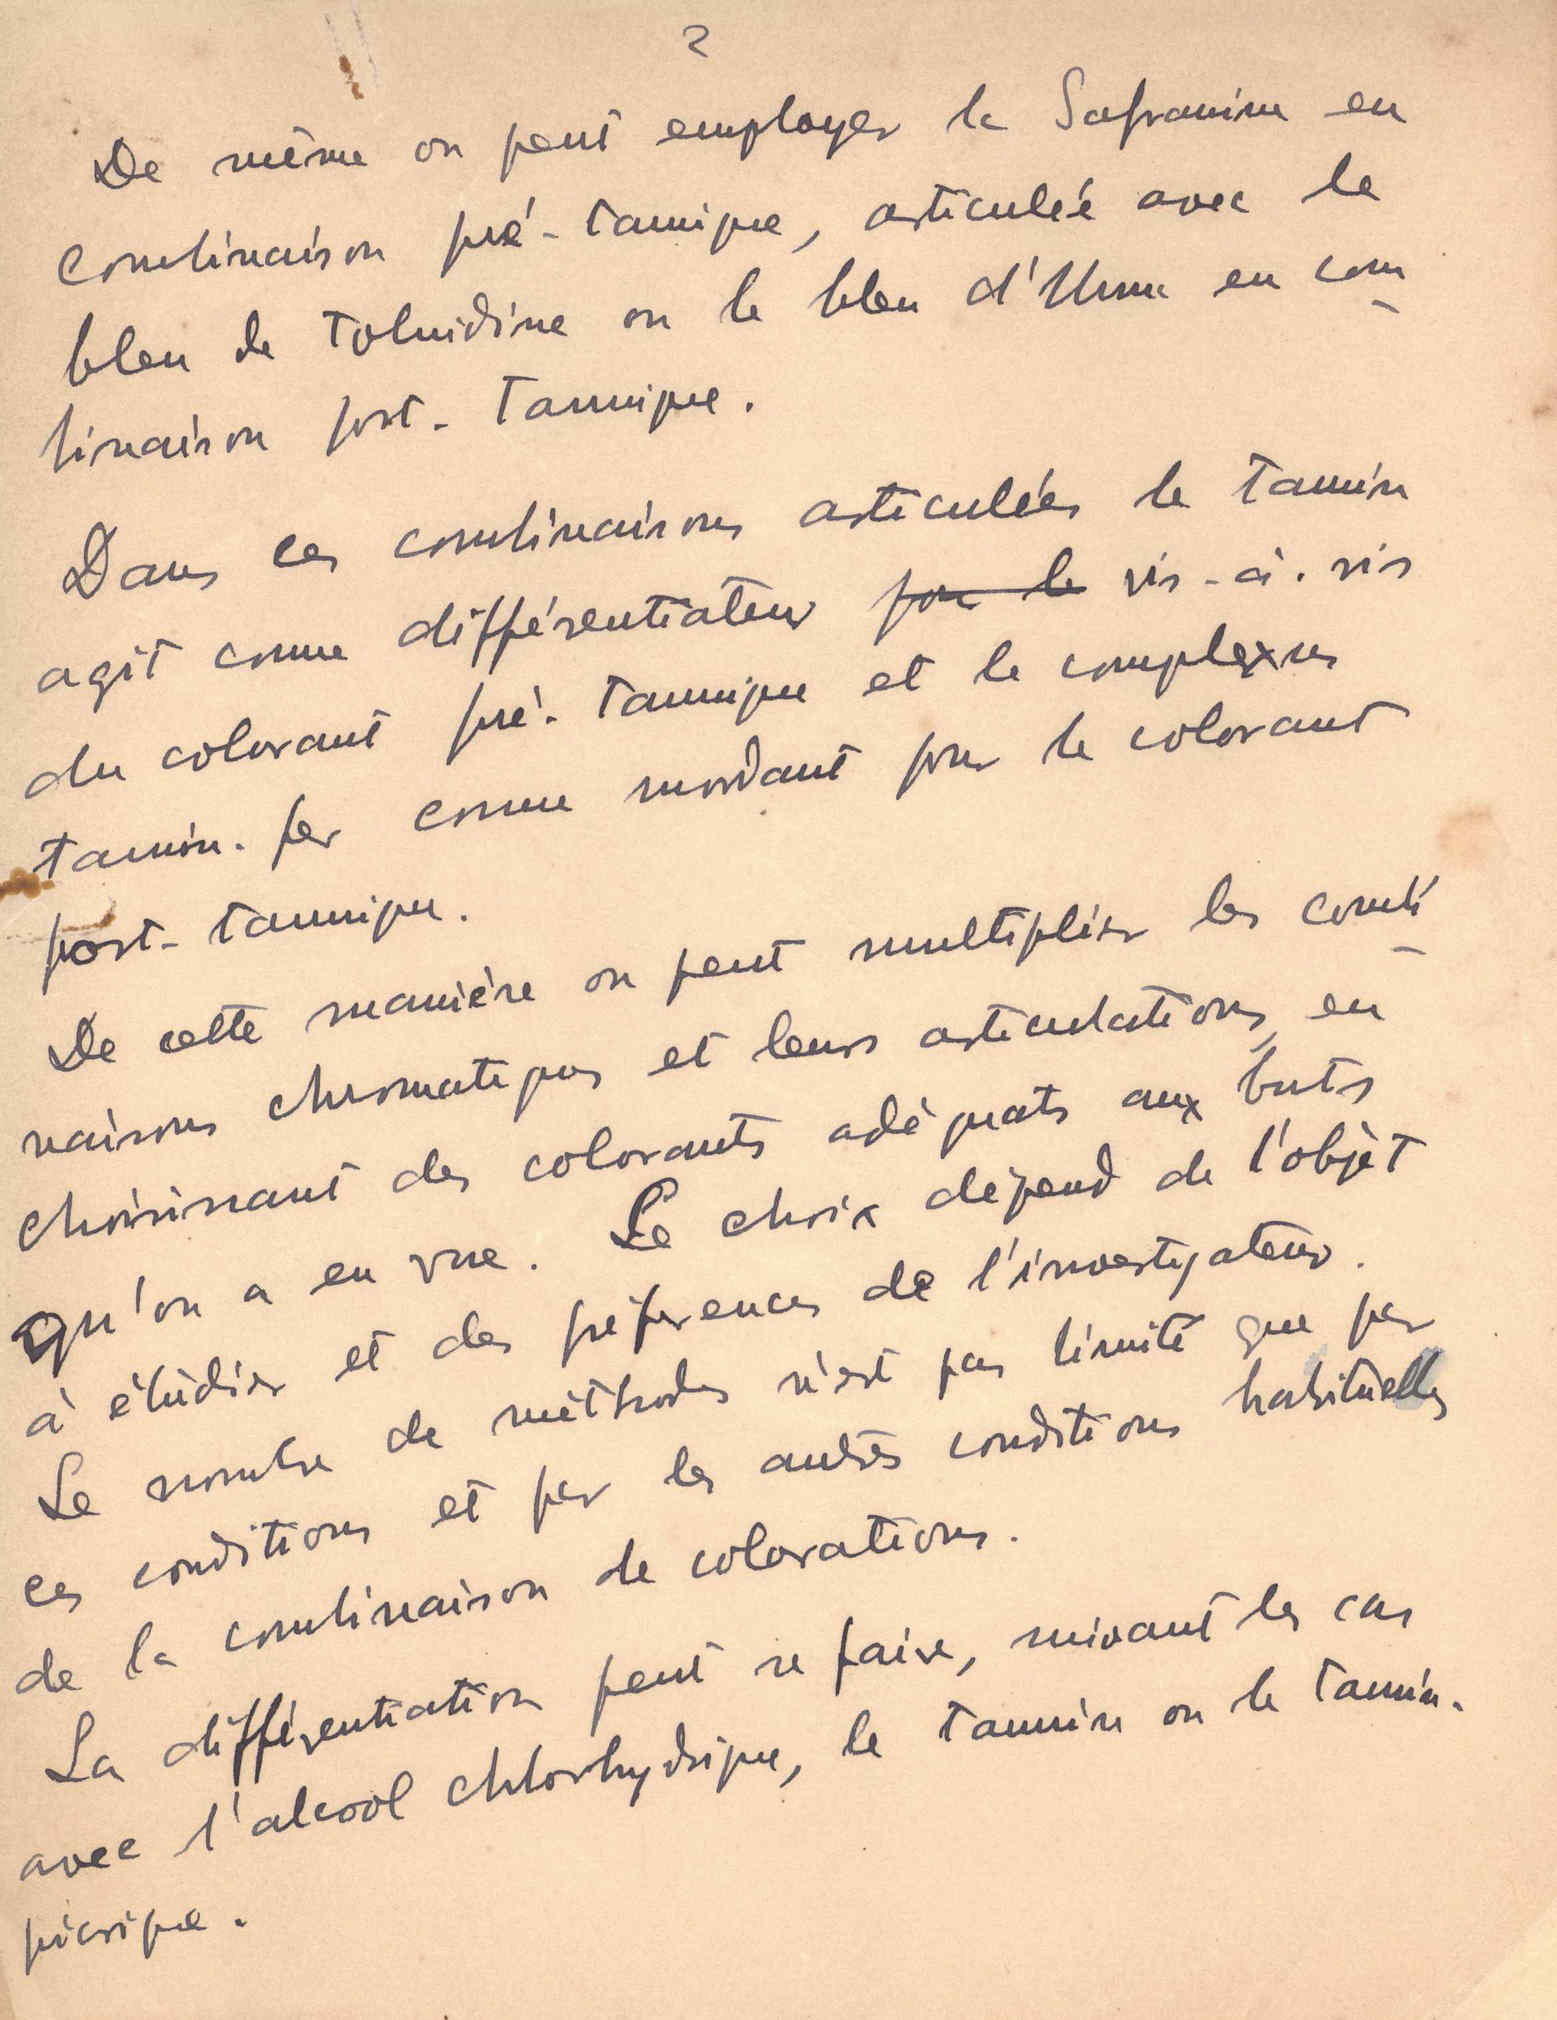 2
De même on peut employer la Safranine en
combinaison pré-tannique, articulée avec le
bleu de Toluidine ou le bleu d'Unna en com
binaison post-tannique.
Dans ces combinaisons articulées le tannin
agit comme différentiateur pour le vis-à-vis
du colorant pré-tannique et le complexus
tannin-fer comme mordant pour le colorant
post-tannique.
De cette manière on peut multiplier les combi
naisons chromatiques et leurs articulations, en
choisissant des colorants adéquats aux buts
qu'on a en vue. Le choix dépend de l'objèt
à étudier et des préférences de l'investigateur.
Le nombre de méthodes n'est pas limité que par
ces conditions et par les autres conditions habituelles
de la combinaison de colorations.
La différentiation peut se faire, suivant les cas
avec l'alcool chlorhydrique, le tannin ou le tannin-
picrique.